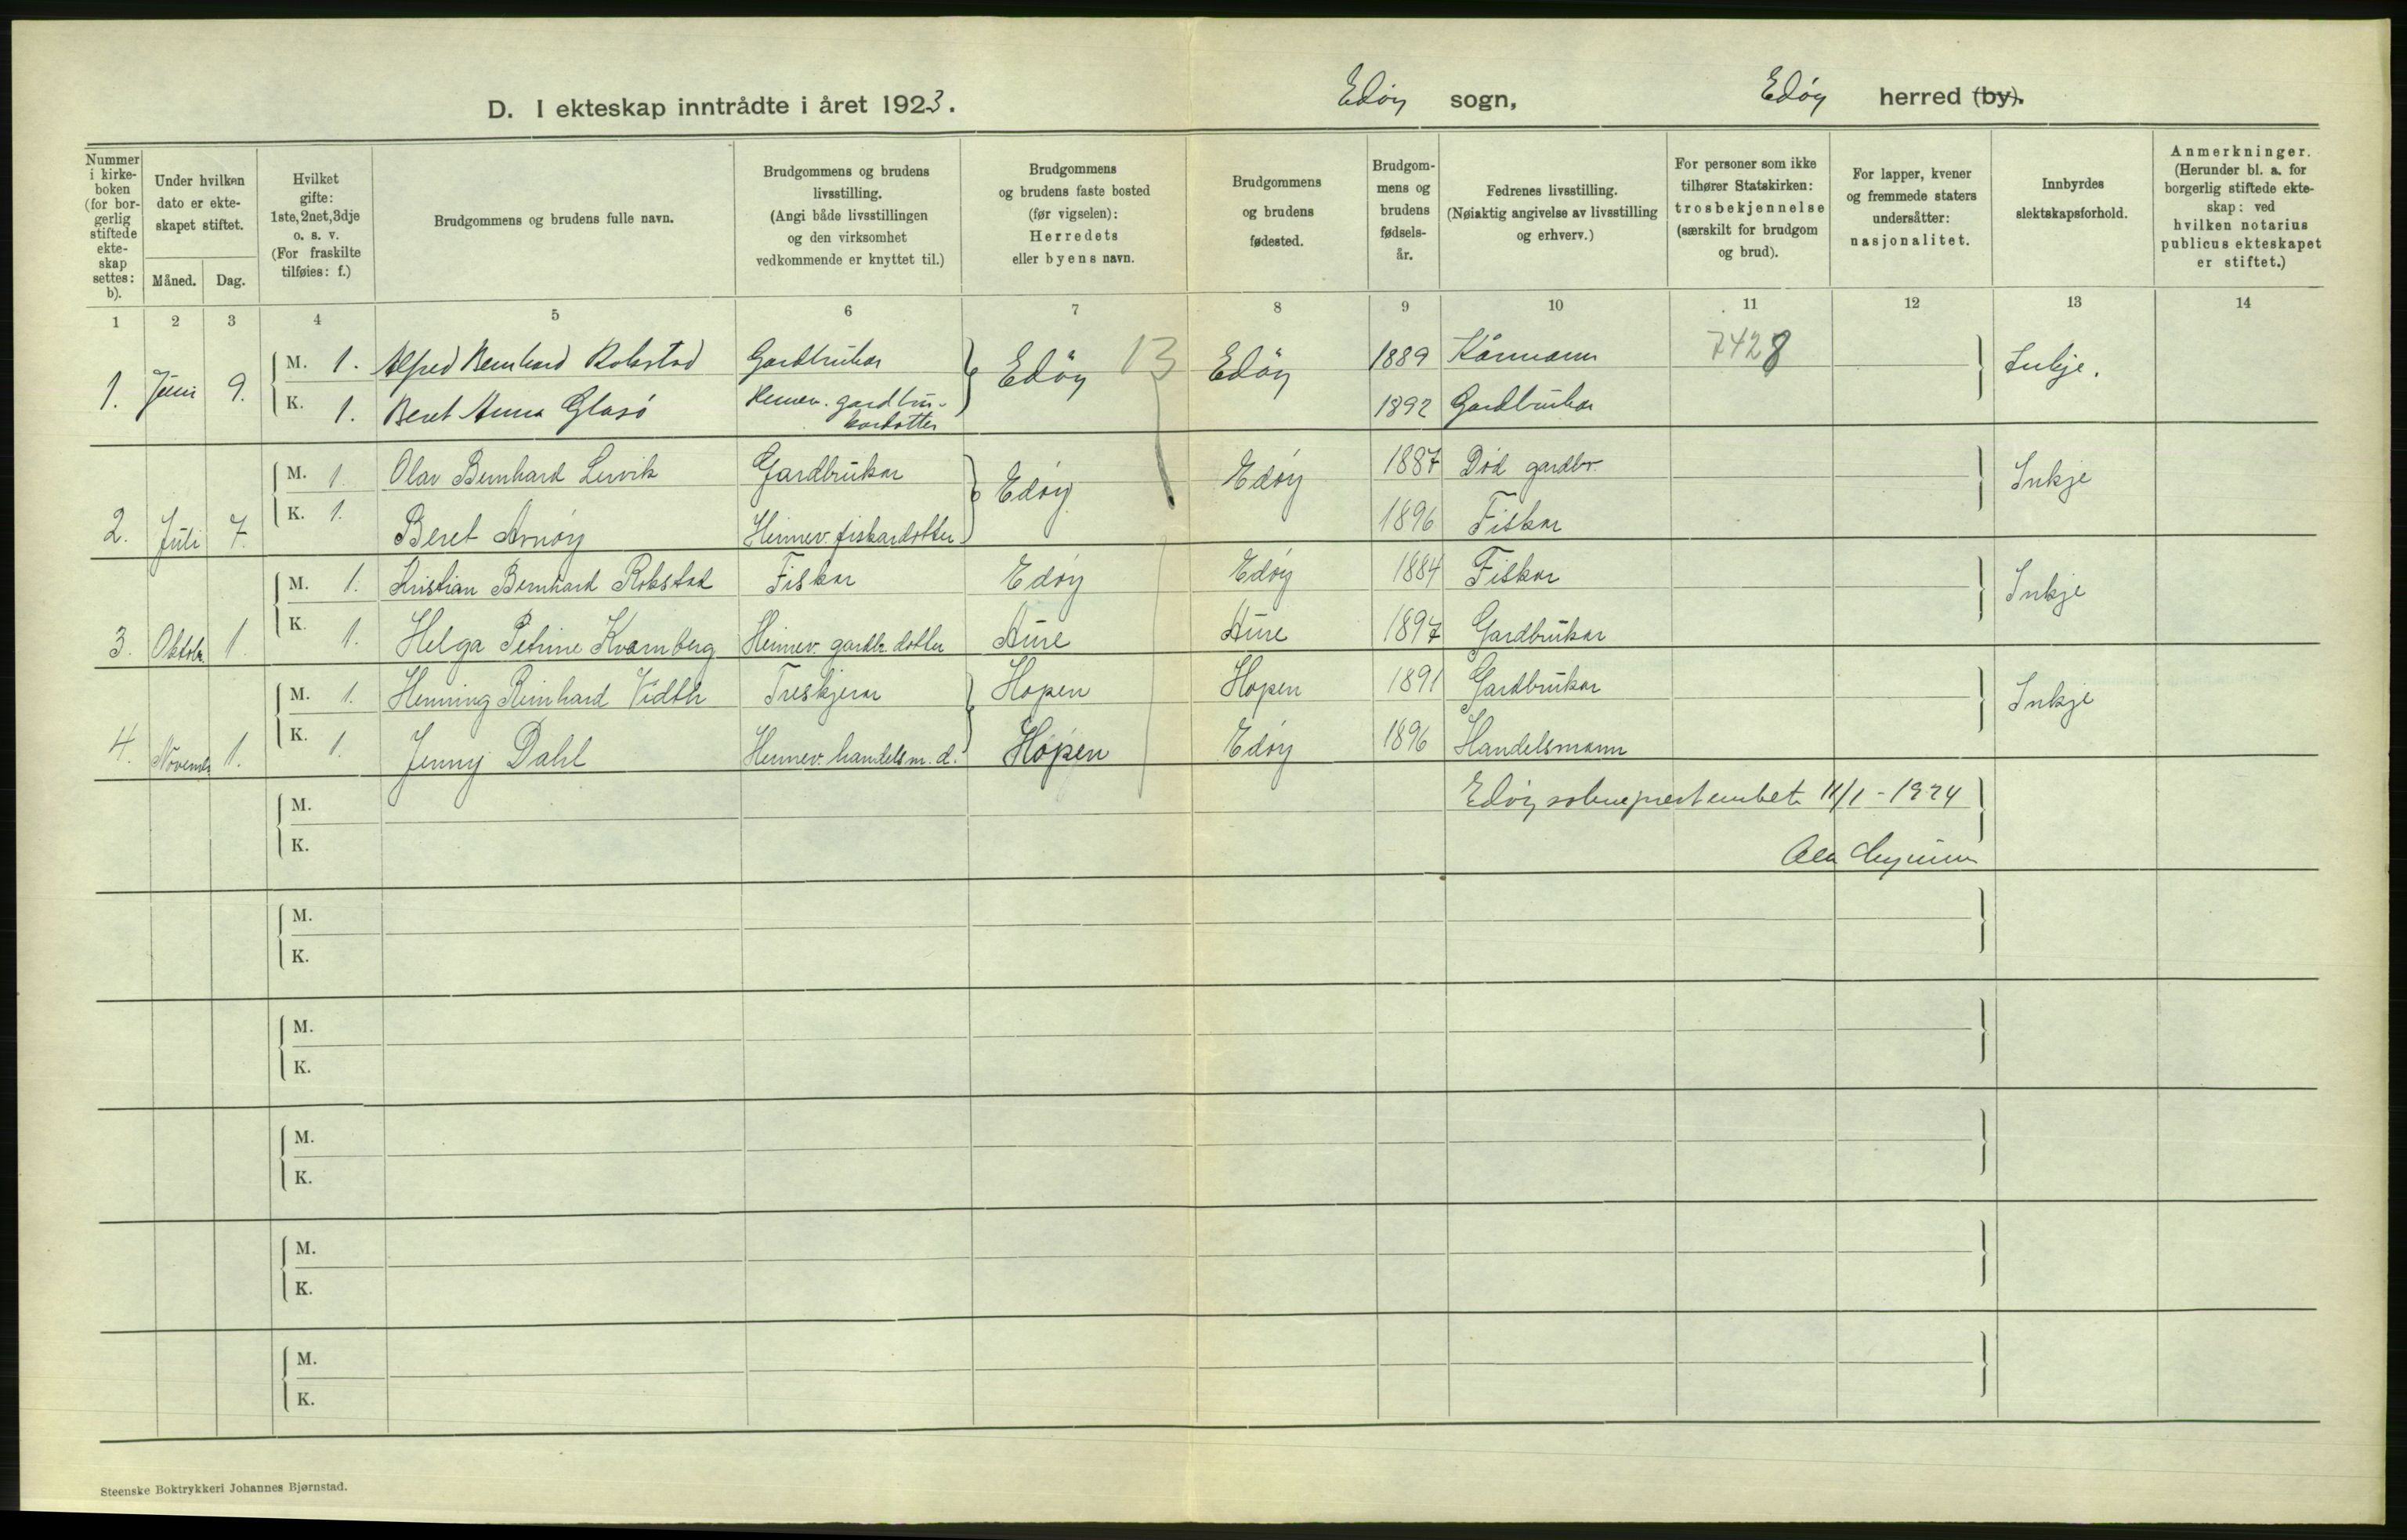 D. I ekteskap inntrådte i året 1923. Edöy sogn, Edöy herred (by).
Nummer i kirkeboken (for borgerlig stiftede ekteskap settes: b).
Under hvilken dato er ekteskapet stiftet.
Måned. Dag.
Hvilket gifte: 1ste, 2net, 3dje o. s. v. (For fraskilte tilføies: f.)
Brudgommens og brudens fulle navn.
Brudgommens og brudens livsstilling. (Angi både livsstillingen og den virksomhet vedkommende er knyttet til.)
Brudgommens og brudens faste bosted (før vigselen): Herredets eller byens navn.
Brudgommens og brudens fødested.
Brudgommens og brudens fødselsår.
Fedrenes livsstilling. (Nøiaktig angivelse av livsstilling og erhverv.)
For personer som ikke tilhører Statskirken: trosbekjennelse (særskilt for brudgom og brud).
For lapper, kvener og fremmede staters undersåtter: nasjonalitet.
Innbyrdes slektskapsforhold.
Anmerkninger. (Herunder bl. a. for borgerlig stiftede ekteskap: ved hvilken notarius publicus ekteskapet er stiftet.)
1 2 3 4 5 6 7 8 9 10 11 12 13 14
M. 1. Alfred Bernhard Rokstad Gardbrukar Edöy 13 Edöy 1889 Kårmann 7428 Inkje.
1. Juni 9. K. 1. Beret Anna Glasö Heimev. gardbrukardotter 1892 Gardbrukar
M. 1. Olav Bernhard Lervik Gardbrukar Edöy Edöy 1887 Död gardbr. Inkje
2. Juli 7. K. 1. Beret Arnöy Heimev. fiskardotter 1896 Fiskar
M. 1. Kristian Bernhard Rokstad Fiskar Edöy Edöy 1884 Fiskar Inkje
3. Oktobr. 1. K. 1. Helga Petrine Kvamberg Heimev. gardbr. dotter Aure Aure 1897 Gardbrukar
M. 1. Henning Reinhard Vidth Treskjerar Hopen Hopen 1891 Gardbrukar Inkje
4. Novembr 1. K. 1. Jenny Dahl Heimev. handelsm. d. Hopen Edöy 1896 Handelsmann
M. Edöy sokneprestembet 11/1 - 1924
K.
M.
K.
M.
K.
M.
K.
M.
K.
M.
K.
Steenske Boktrykkeri Johannes Bjørnstad.